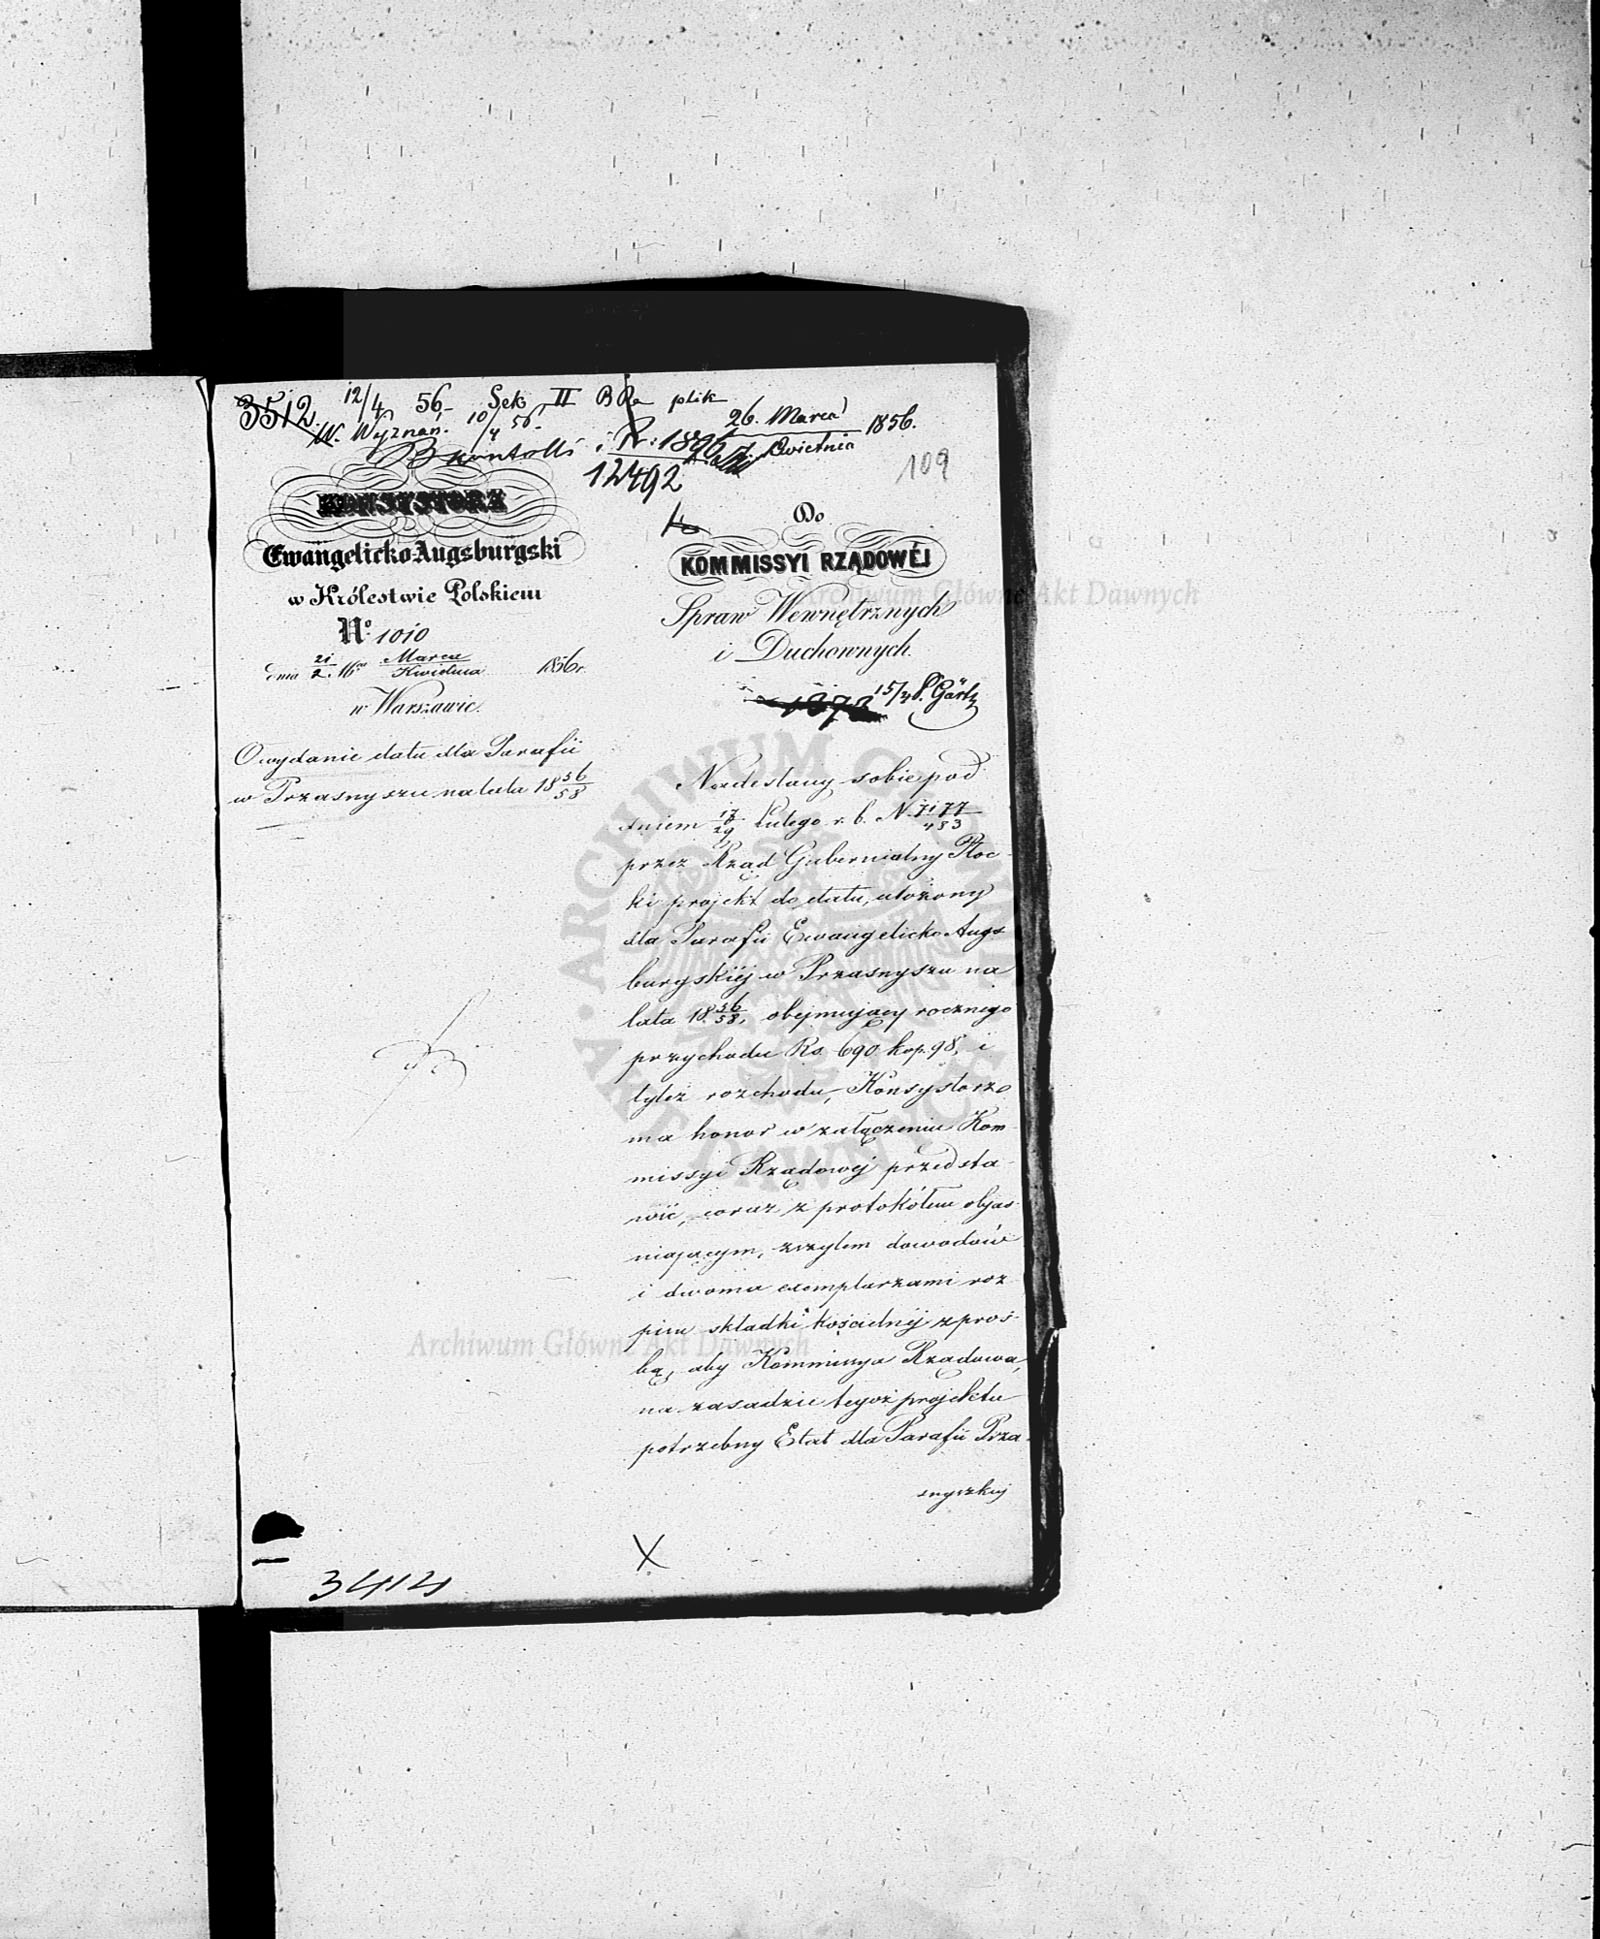 3512. 12/4 56. Sek II B Ra plik
W. Wyznań. 10/4 56.
B kontrolli i Nr: 1896
12492
26. Marca / Kwietnia 1856.
109
KONSYSTORZ
Ewangelicko-Augsburgski
w Królestwie Polskiem
No. 1010
dnia 21/2. Marca/Kwietnia 1856 r.
w Warszawie.
O wydanie etatu dla Parafii
w Przasnyszu na lata 18 56/58
Do
KOMMISSYI RZĄDOWÉJ
Spraw Wewnętrznych
i Duchownych.
1873 15/4 P. Gärtz
Nadesłany sobie pod
dniem 17/29 Lutego r. b. N. 7177/483
przez Rząd Gubernialny Płoc-
ki projekt do etatu, ułożony
dla Parafii Ewangelicko Augs-
burgskiéj w Przasnyszu na
lata 18 56/58, obejmujący rocznego
przychodu Rs. 690 kop. 98, i
tyleż rozchodu, Konsystorz
ma honor w załączeniu Kom-
missyi Rządowéj przedsta-
wić, wraz z protokółem objaś-
niającym, zszytem dowodów
i dwoma exemplarzami roz-
pisu składki kościelnéj z proś-
bą, aby Kommissya Rządowa,
na zasadzie tegoż projektu
potrzebny Etat dla Parafii Prza-
snyszkiéj
X
3414
Archiwum Główne Akt Dawnych
Archiwum Główne Akt Dawnych
ARCHIWUM GŁÓWNE AKT DAWNYCH